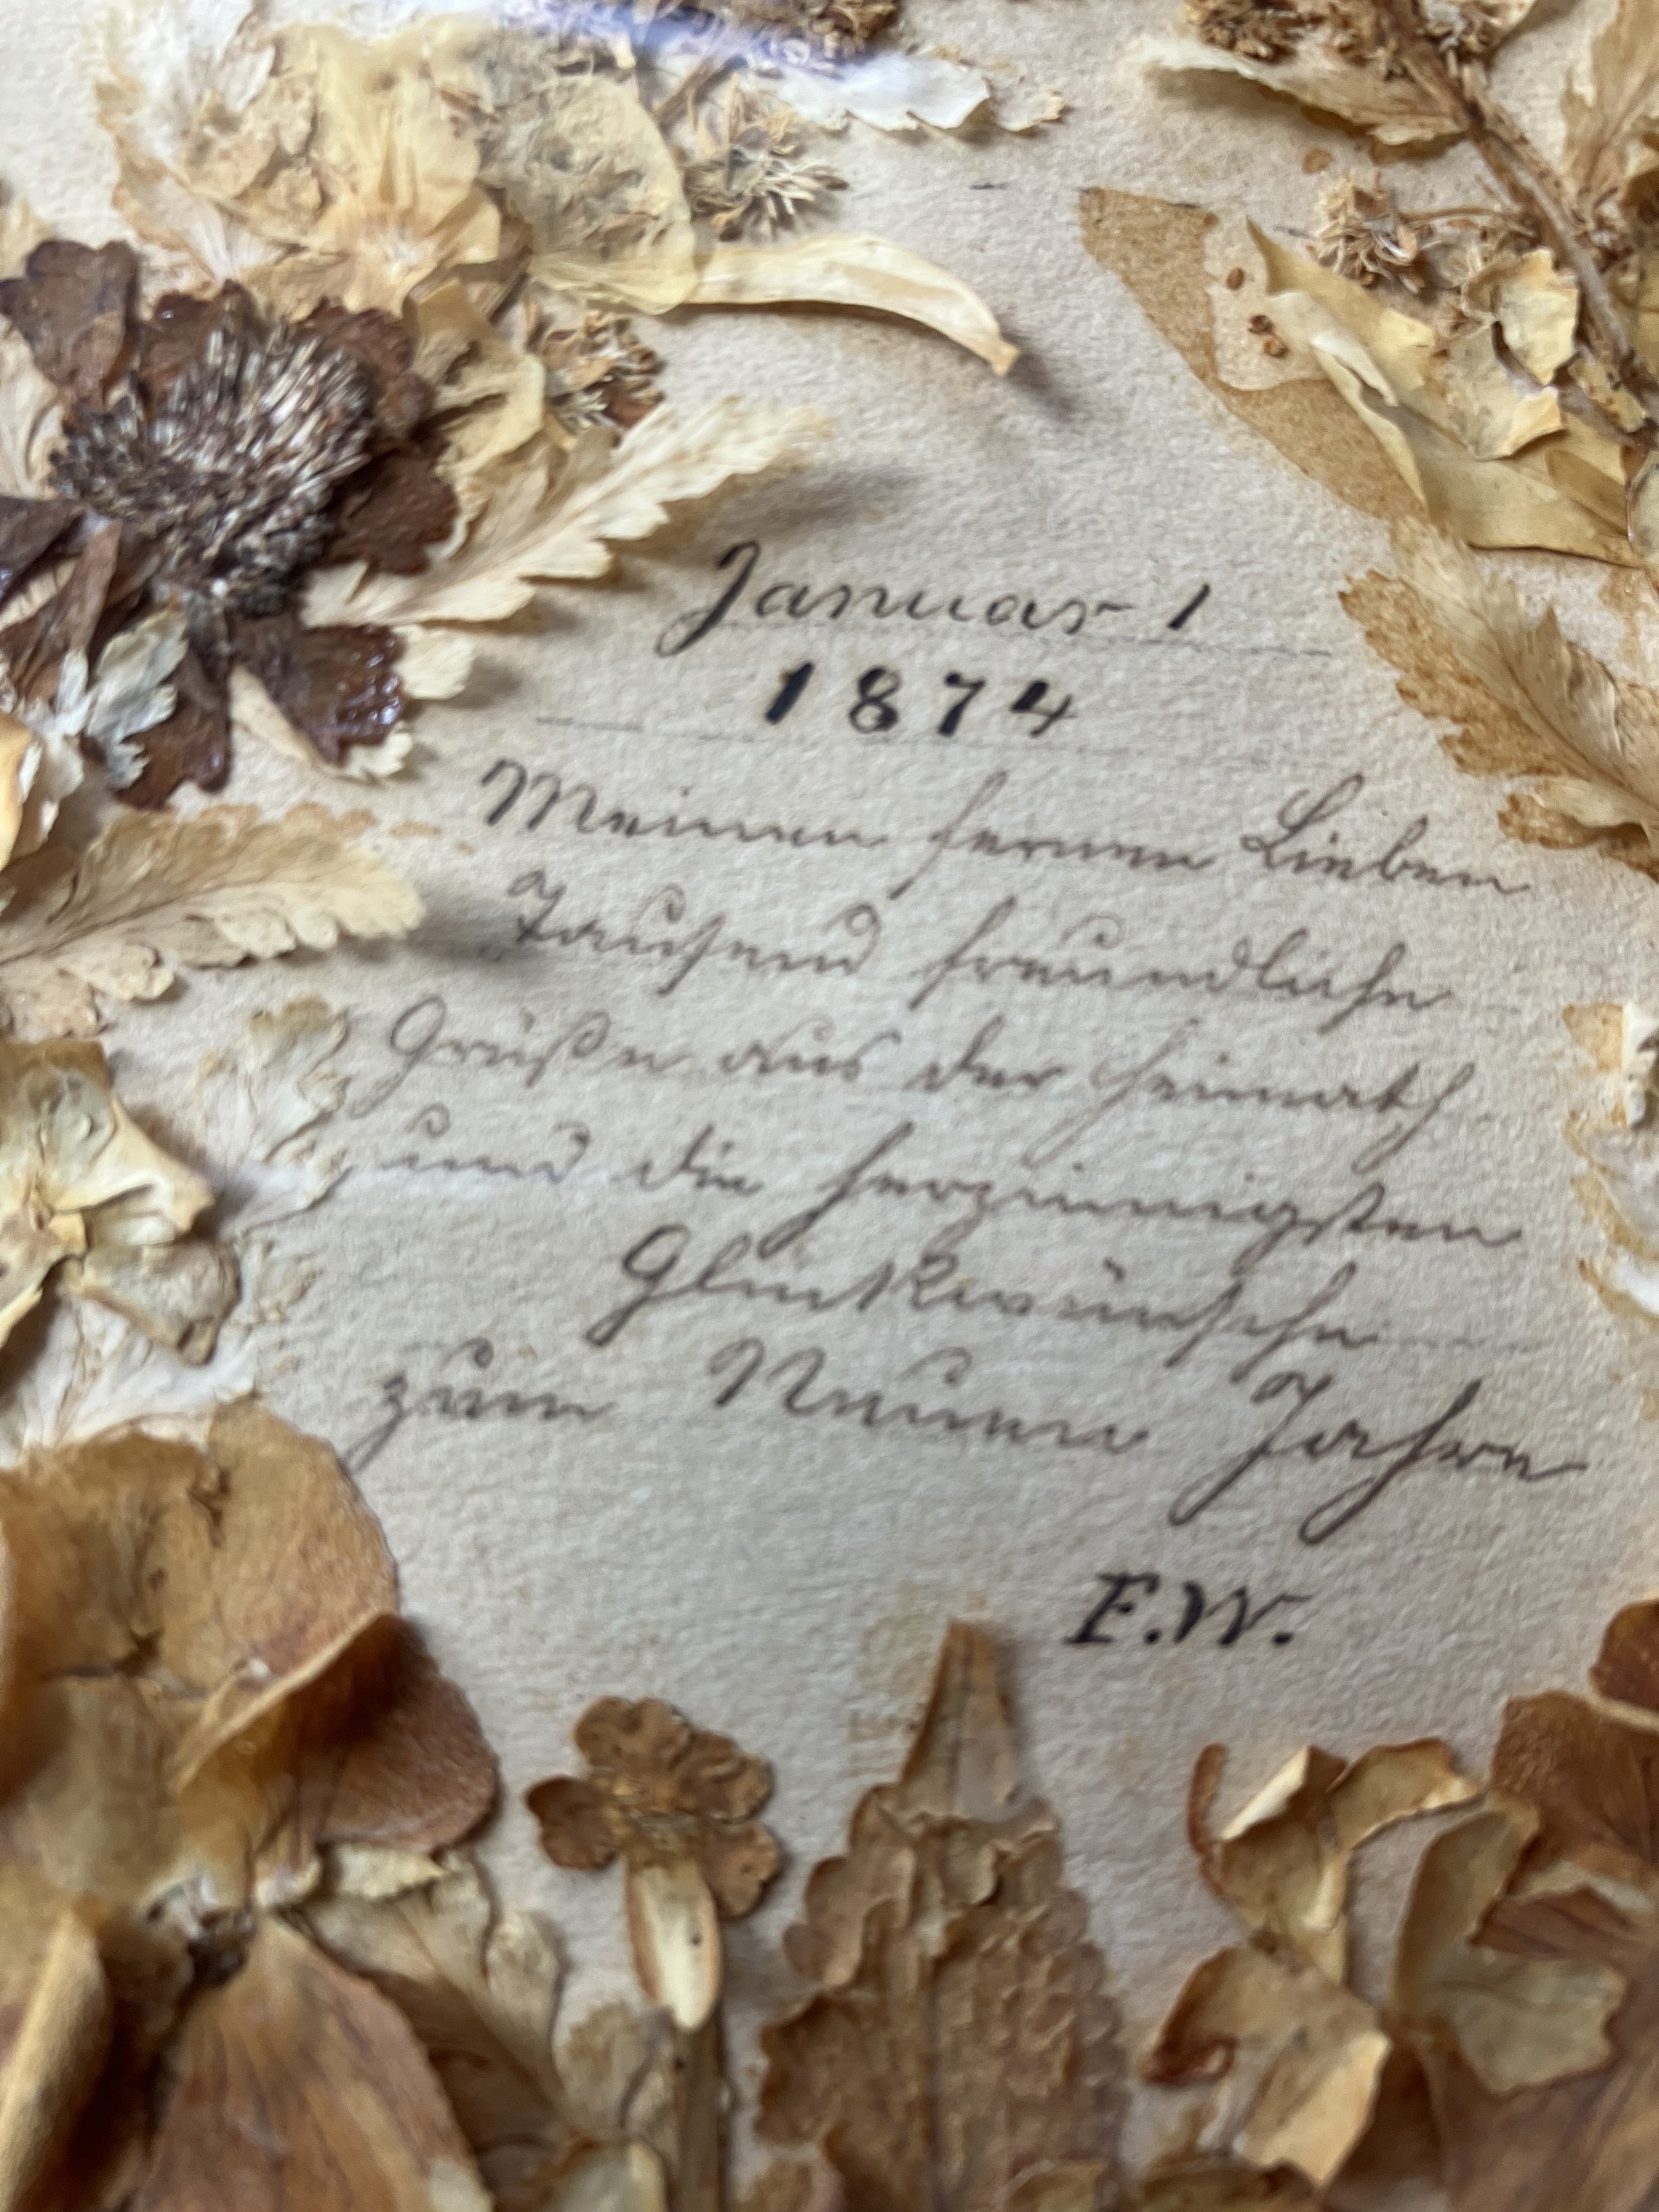 Januar 1
1874
Meinen fernen Lieben
Tausend freundliche
Grüße aus der Heimath
und die herzinnigsten
Glückwünsche
zum Neuen Jahre
E.W.